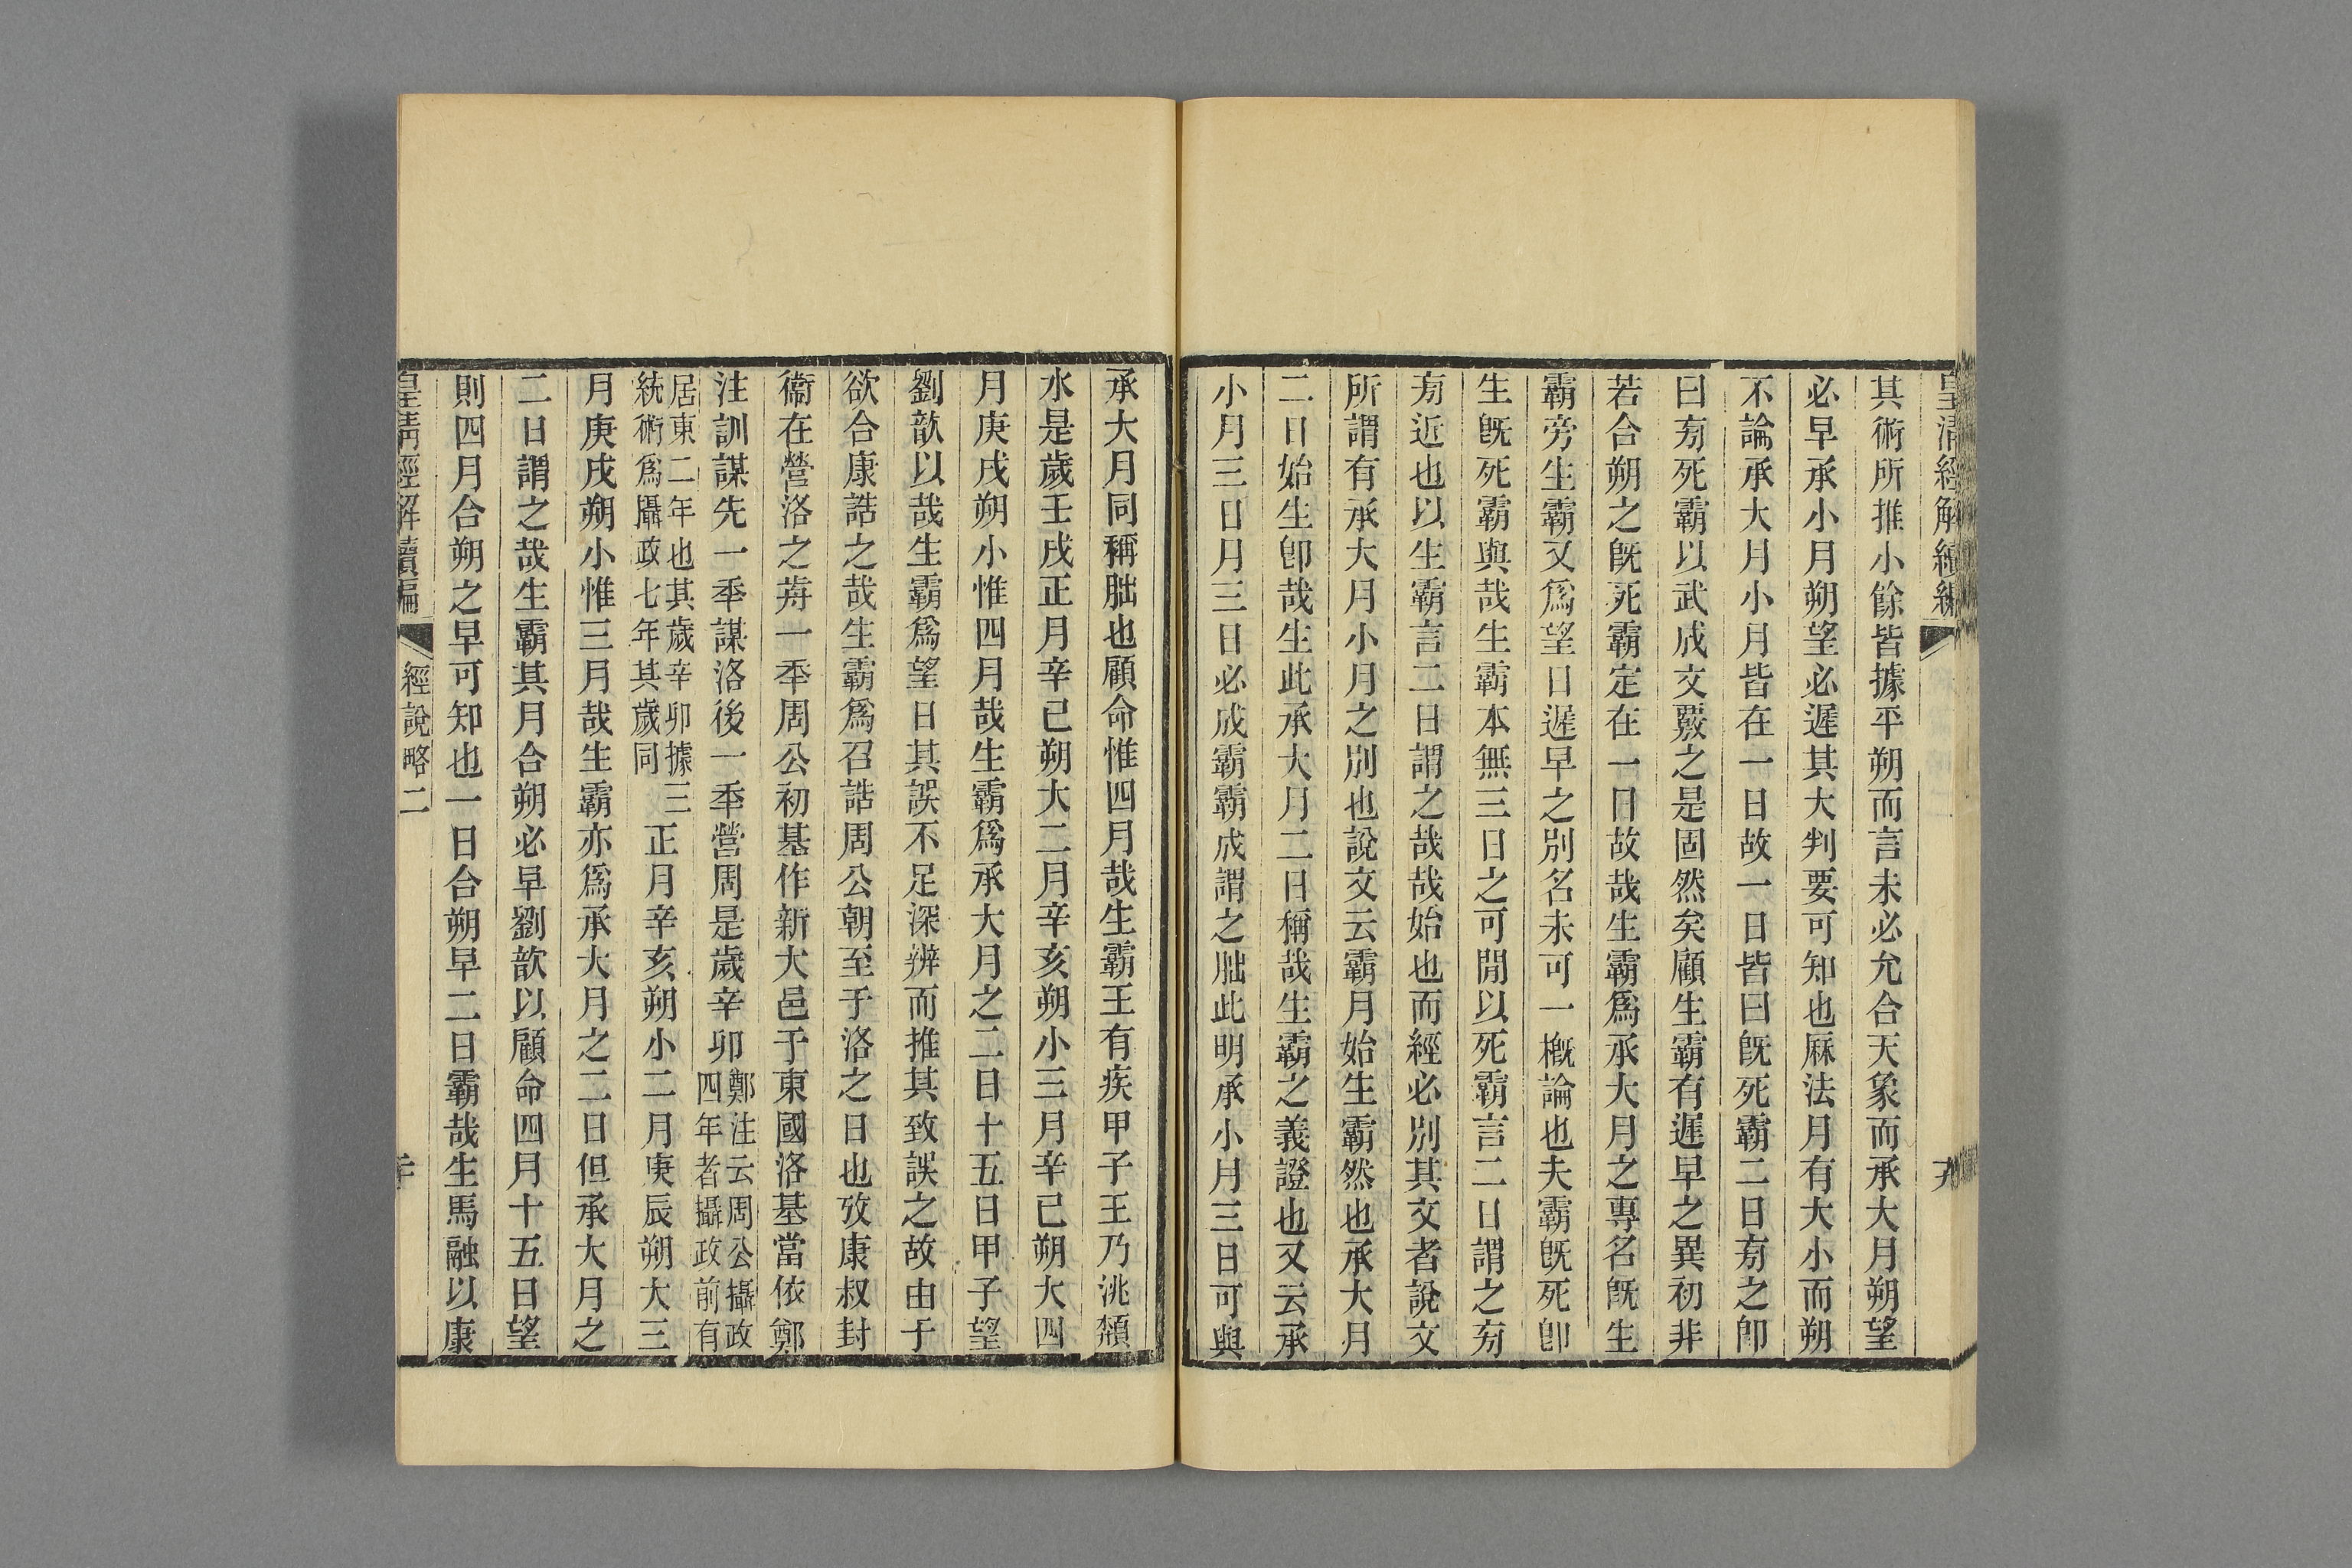 皇清經解續編
其術所推小餘皆據平朔而言未必允合天象而承大月朔望
必早承小月朔望必遲其大判要可知也厤法月有大小而朔
不論承大月小月皆在一日故一日皆曰旣死霸二日㫄之卽
曰㫄死霸以武成文覈之是固然矣顧生霸有遲早之異初非
若合朔之旣死霸定在一日故哉生霸爲承大月之專名旣生
霸旁生霸又爲望日遲早之別名未可一槪論也夫霸旣死卽
生旣死霸與哉生霸本無三日之可閒以死霸言二日謂之㫄
㫄近也以生霸言二日謂之哉哉始也而經必別其文者說文
所謂有承大月小月之別也說文云霸月始生霸然也承大月
二日始生卽哉生此承大月二日稱哉生霸之義證也又云承
小月三日月三日必成霸霸成謂之朏此明承小月三日可與
承大月同稱朏也顧命惟四月哉生霸王有疾甲子王乃洮頮
水是歲壬戌正月辛巳朔大二月辛亥朔小三月辛巳朔大四
月庚戌朔小惟四月哉生霸爲承大月之二日十五日甲子望
劉歆以哉生霸爲望日其誤不足深辨而推其致誤之故由于
欲合康誥之哉生霸爲召誥周公朝至于洛之日也攷康叔封
衞在營洛之歬一秊周公初基作新大邑于東國洛基當依鄭
注訓謀先一秊謀洛後一秊營周是歲辛卯鄭注云周公攝政
四年者攝政前有
居東二年也其歲辛卯據三
統術爲攝政七年其歲同正月辛亥朔小二月庚辰朔大三
月庚戌朔小惟三月哉生霸亦爲承大月之二日但承大月之
二日謂之哉生霸其月合朔必早劉歆以顧命四月十五日望
則四月合朔之早可知也一日合朔早二日霸哉生馬融以康
皇清經解續編
經說略二